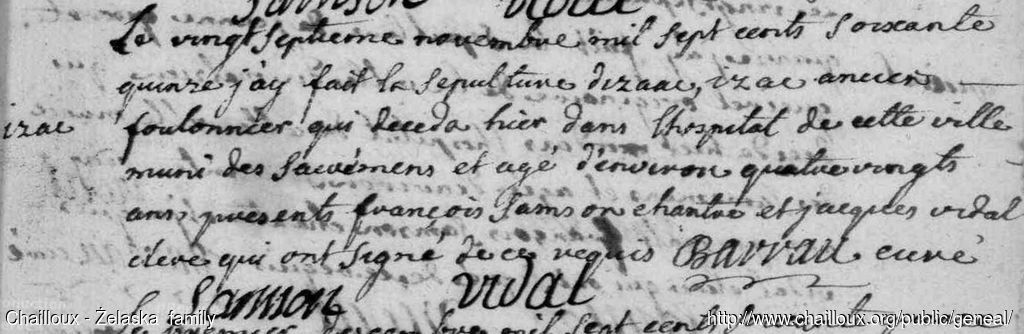 Samson vidal
Le vingt septieme novembre mil sept cents soixante
quinze j'ay fait la sepulture dizaac, izac ancien
izac
foulonnier qui deceda hier dans l'hospital de cette ville
muni des sacremens et agé d'environ quatre vingts
ans, presents françois samson chantre et jacques vidal
clerc qui ont signé de ce requis Barrau curé
Samson vidal
mil sept cents
Chailloux - Żelaska family
http://www.chailloux.org/public/geneal/